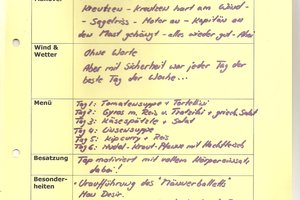 Manöver
Kreutzen - Kreutzen hart am Wind -
- Segelriss - Motor au - Kapitän an
den Mast gehängt - alles wieder gut - Ahoi
Wind &
Wetter
Ohne Worte
Aber mit Sicherheit war jeder Tag der
beste Tag der Woche...
Menü
Tag 1: Tomatensuppe + Tortellini
Tag 2: Gyros m. Reis u. Tzatziki + griech. Salat
Tag 3: Käsespätzle + Salat
Tag 4: Linsensuppe
Tag 5: Kipcurry + Reis
Tag 6: Nudel-Kraut-Pfanne mit Hackfleisch
Besatzung
Top motiviert mit vollem Körpereinsatz
dabei!
Besonder-
heiten
- Uraufführung des "Männerballetts"
Mon Desir.